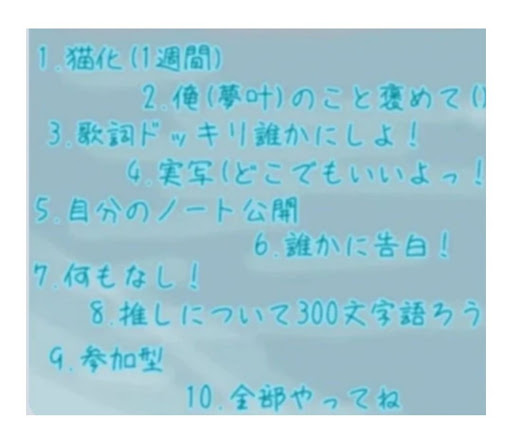 1.猫化(1週間)
2.俺(夢叶)のこと褒めて()
3.歌詞ドッキリ誰かにしよ!
4.実写(どこでもいいよっ!
5.自分のノート公開
6.誰かに告白!
7.何もなし!
8.推しについて300文字語ろう
9.参加型
10.全部やってね